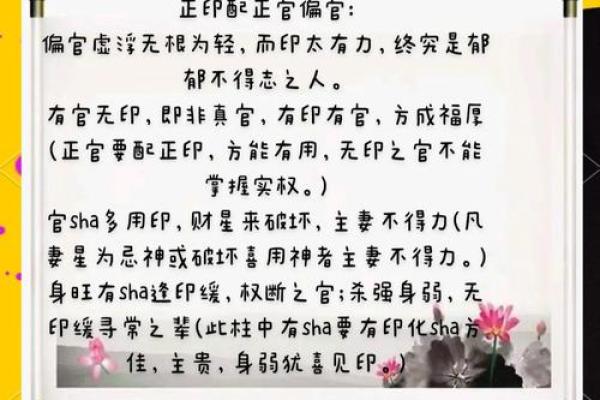 正印配正官偏官:
偏官虚浮无根为轻,而印太有力,终究是郁
郁不得志之人。
有官无印,即非真官,有印有官,方成福厚
(正官要配正印,方能有用,无印之官不能
掌握实权。)
官sha多用印,财星来破坏,主妻不得力(凡
妻星为忌神或破坏喜用神者主妻不得力。)
身旺有sha逢印缓,权断之官;杀强身弱,无
印缓寻常之辈(此柱中有sha要有印化sha方
佳,主贵,身弱犹喜见印。)